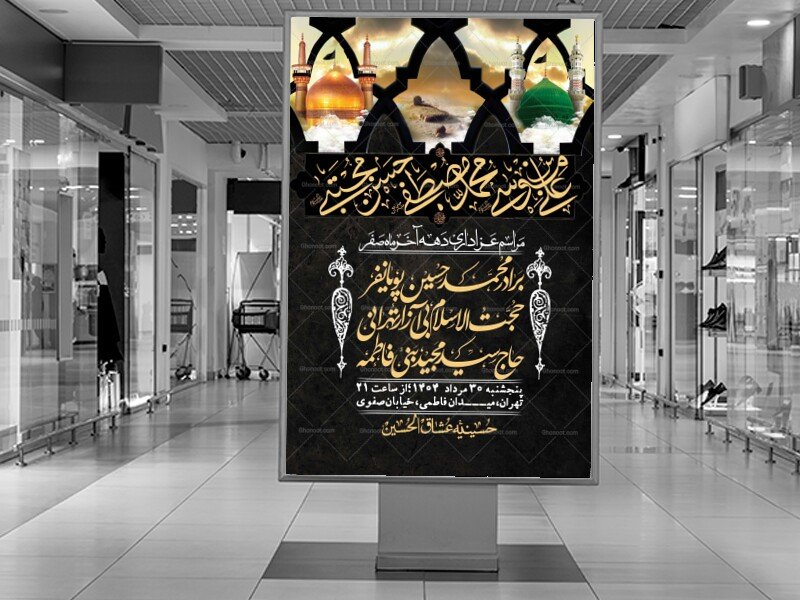 مراسم عزاداری دهه آخر ماه صفر
برادر محمد حسین پویانفر
حجت الاسلام بی آزار تهرانی
حاج سید مجید بنی فاطمه
پنجشنبه ۳۰ مرداد ۱۴۰۴؛ از ساعت ۲۱
تهران، میدان فاطمی، خیابان صفوی
حسینیه عشاق الحسین
Ghonoot.com